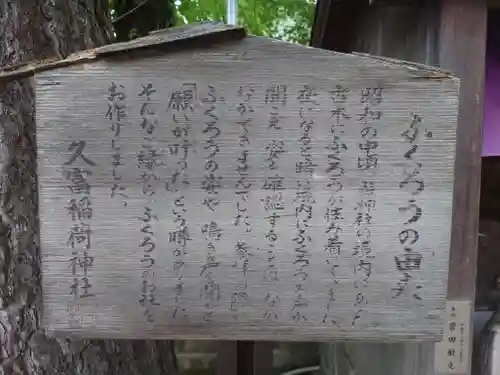 ふくろうの由来
昭和の中頃 当神社の境内にあった
古木にふくろうが住み着いていました
夜になると時に境内にふくろうの声が
聞こえ 姿を確認することはなか
なかできませんでした。参拝の際に
ふくろうの姿や 鳴き声を聞くと
「願いが叶った」とう噂がありました
そんなご縁から、ふくろうのお社を
お作りしました。
久富稲荷神社